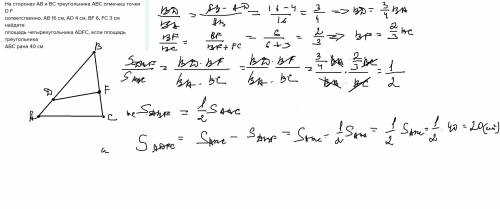 На сторонах AB и BC треугольника ABC отмечец точки
D F
сответственно, AB 16 см, AD 4 см, BF 6, FC 3 см
найдете
площадь четырехугольника ADFC, если площадь
треугольника
ABC рана 40 см
B
D
F
A
C
BD/BA = (AB - AD)/AB = (16-4)/16 = 3/4 => BD = 3/4 BA
BF/BC = BF/(BF+FC) = 6/(6+3) = 2/3 => BF = 2/3 BC
S_DBF/S_ABC = (BD · BF)/(BA · BC) = (BD · BF)/(BA · BC) = (3/4 BA · 2/3 BC)/(BA · BC) = 1/2
S_DBF = 1/2 S_ABC
S_ADFC = S_ABC - S_DBF = S_ABC - 1/2 S_ABC = 1/2 S_ABC = 1/2 · 40 = 20 (см²)